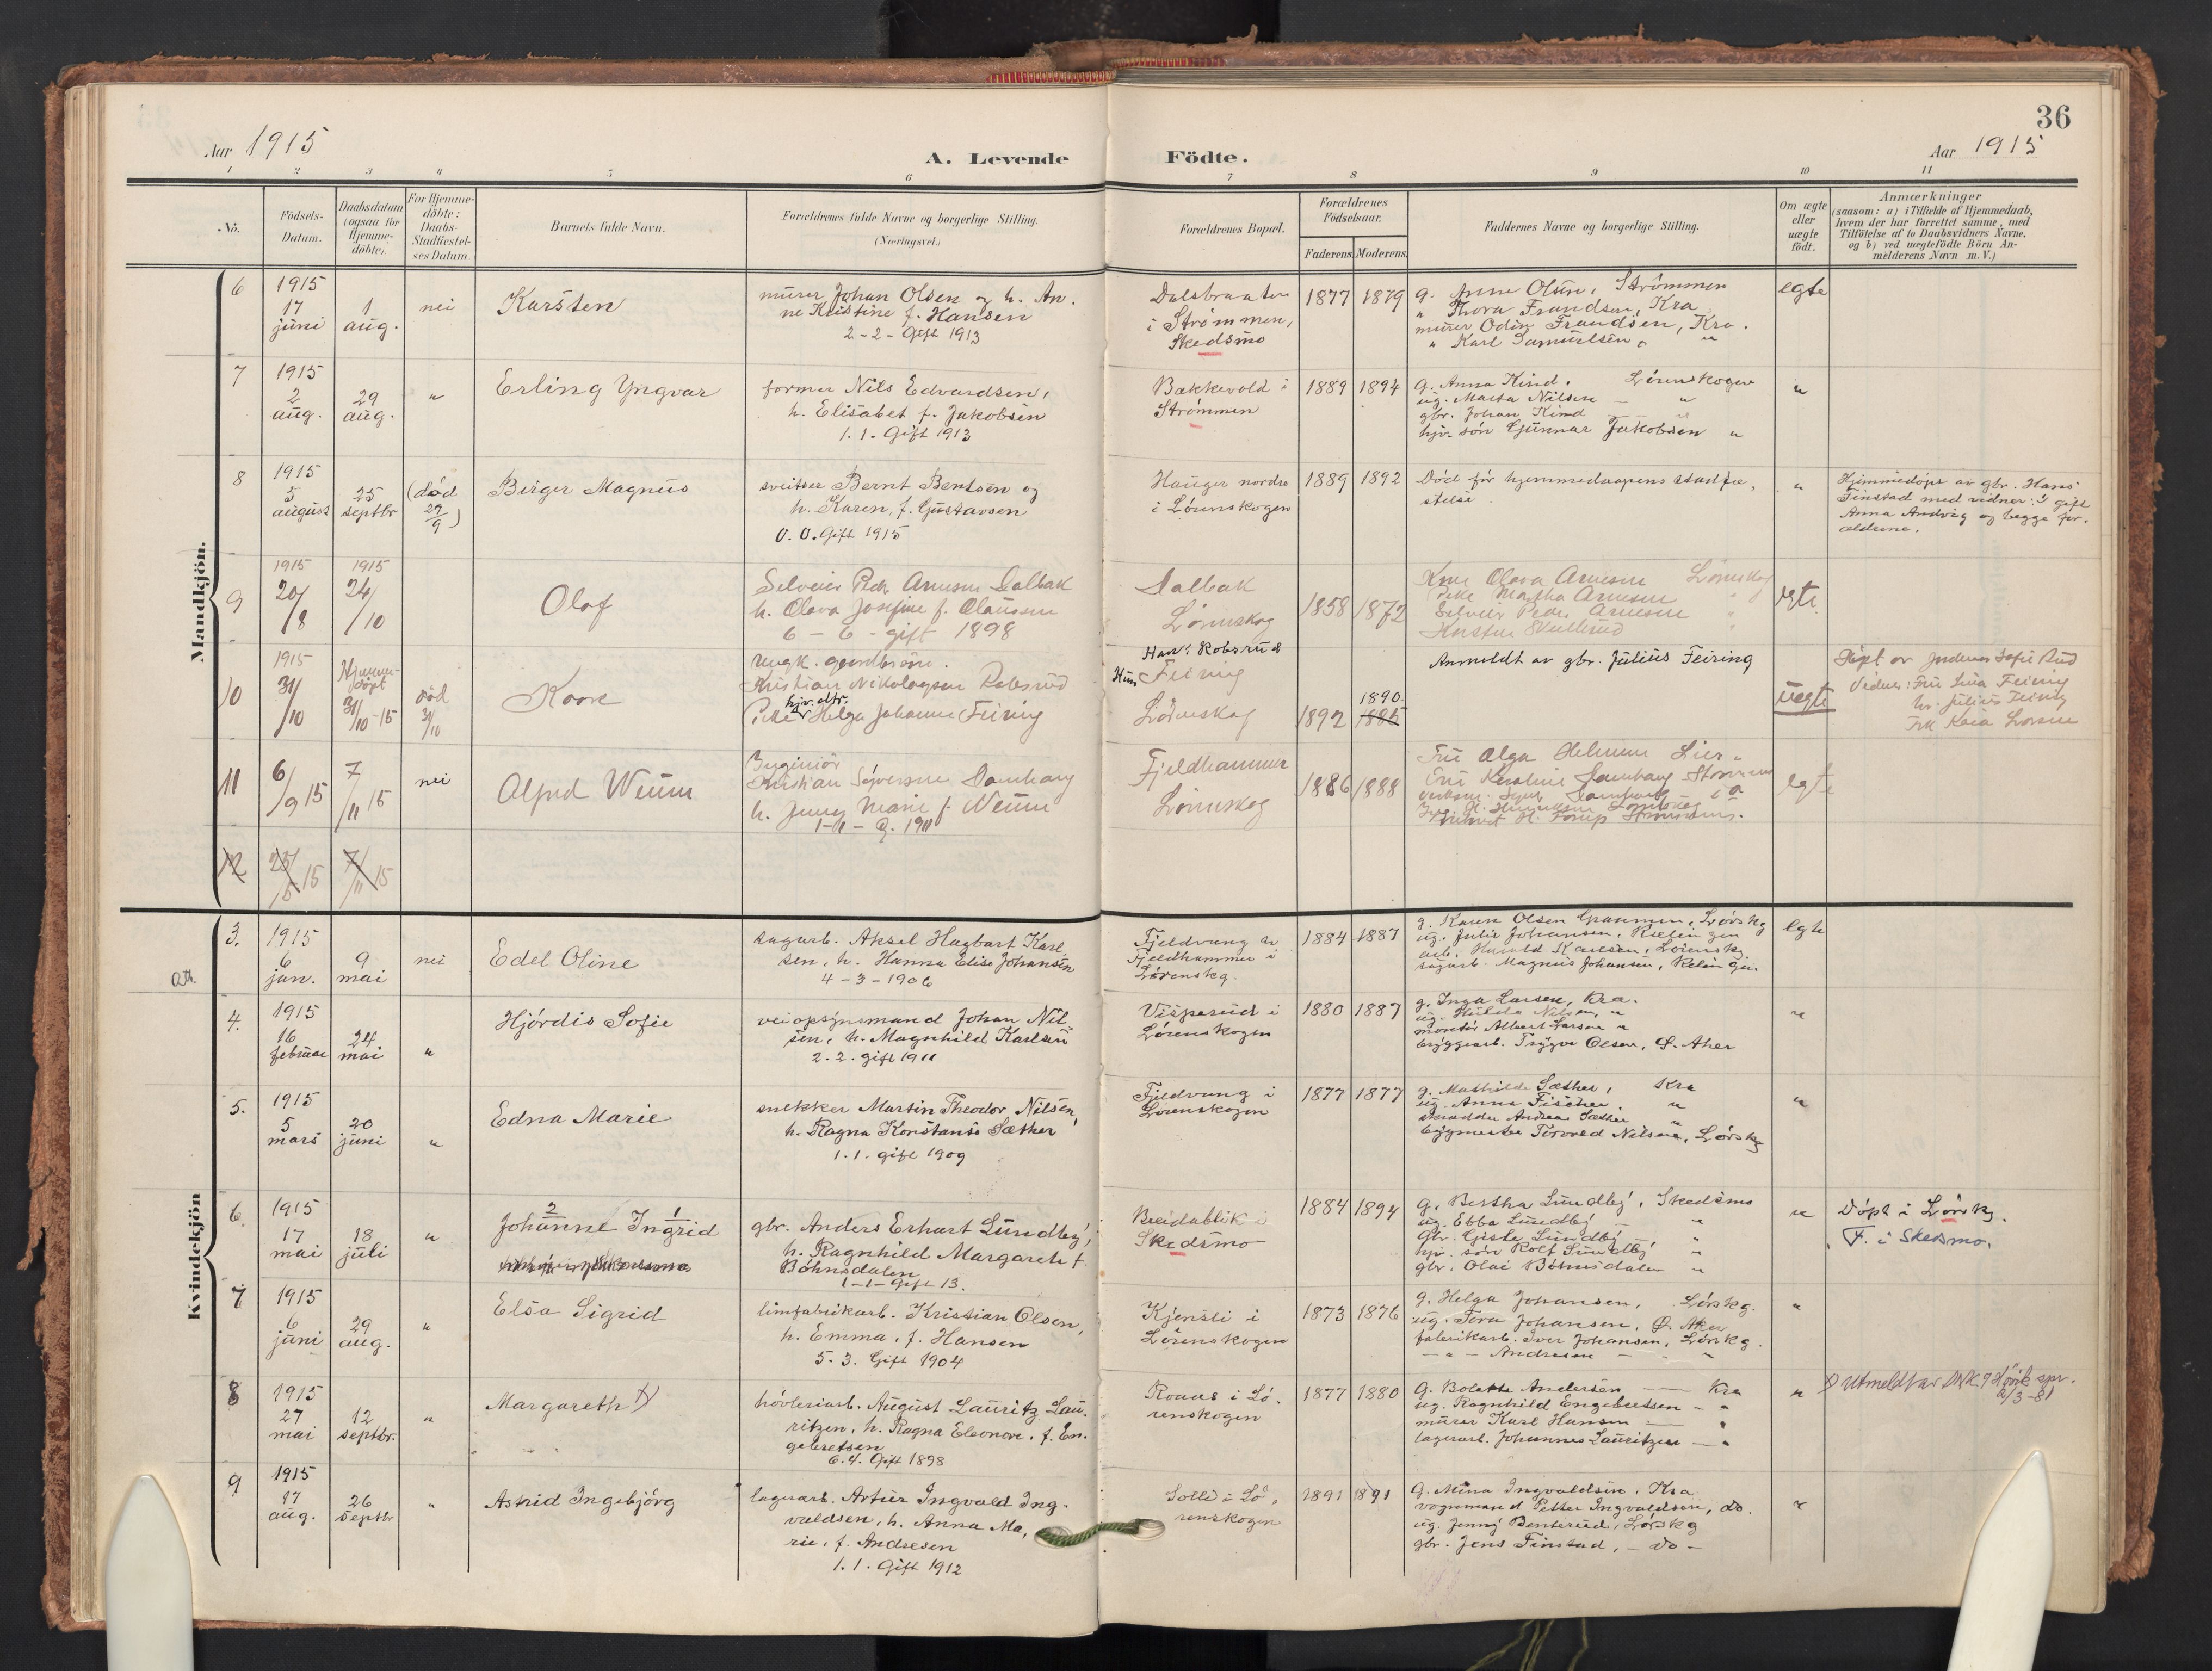 36
Aar 1915
A. Levende Födte.
Aar 1915
1 2 3 4 5 6 7 8 9 10 11
No.
Födsels-Datum.
Daabsdatum (ogsaa for Hjemme-döbte).
For Hjemme-döbte: Daabs-Stadfæstel-ses Datum.
Barnets fulde Navn.
Forældrenes fulde Navne og borgerlige Stilling.
(Næringsvei.)
Forældrenes Bopæl.
Forældrenes Födselsaar.
Faderens. Moderens.
Faddernes Navne og borgerlige Stilling.
Om ægte eller uægte födt.
Anmærkninger
(saasom: a) i Tilfælde af Hjemmedaab,
hvem der har forrettet samme, med
Tilföielse af to Daabsvidners Navne,
og b) ved uægtefödte Börn An-
melderens Navn m. V.)
Mandkjön.
6
1915
17 juni
1 aug.
nei
Karsten
murer Johan Olsen og h. An.
ne Kristine f. Hansen
2-2- Gift 1913
Dalsbraaten
i Strømmen,
Skedsmo
1877 1879
g. Anne Olsen, Strømmen
" Thora Frandsen, Kra
murer Odin Frandsen, Kra.
" Karl Samuelsen, "
egte
7
1915
2 aug.
29 aug.
"
Erling Yngvar
former Nils Edvardsen,
h. Elisabet f. Jakobsen
1.1. Gift 1913
Bakkevold i
Strømmen
1889 1894
g. Anna Kind, Lørenskogen
ug. Marta Nilsen - "
gbr. Johan Kind - "
hjv. søn Gunnar Jakobsen "
"
8
1915
5 august
25 septbr
(død 29/9)
Birger Magnus
sveitser Bernt Bentsen og
h. Karen, f. Gustavsen
0.0. Gift 1915
Hauger nordre
i Lørenskogen
1889 1892
Død før hjemmedaapens stadfæ,
stelse.
"
Hjemmedøpt av gbr. Hans
Finstad med vidner: gift
Anna Andvig og begge for.
ældrene.
9
1915
20/8
1915
24/10
Olaf
Selveier Peder Arnesen Dalbak
h. Olava Josefine f. Olaussen
6 - 6 - gift 1898
Dalbak
Lørenskog
1858/1872
Kone Olava Arnesen Lørenskog
Pike Martha Arnesen "
Selveier Peder Arnesen "
Skullerud "
egte.
10
1915
31/10
Hjemme-
døpt
31/10-15
død
31/10
Kaare
Ungk. gaardbrsøn.
Kristian Nikolaysen Robsrud
hjv. dtr.
Pike Helga Johanne Feiring
Hans Robsrud
Hun Feiring
Lørenskog
1892
1890
1885
Anmeldt av gbr. Julius Feiring
uegte
Døpt av Jordmor Sofie Rud
Vidner: Fru Lina Feiring
hr. Julius Feiring
Frk Kaia Larsen
11
6/9 15
7/11 15
nei
Alfred Weum
Ingeniør
Kristian Syversen Damhaug
h. Jenny Marie f. Weum
1-1- G. 1911
Fjeldhammer
Lørenskog
1886/1888
Fru Alga Helmen Lier
Fru Damhaug Strømmen
egte
12
25/5 15
7/11 15
Kvindekjön
att.
3.
1915
6 jan.
9 mai
nei
Edel Oline
sagarb. Aksel Hagbart Karl
sen, h. Hanna Elise Johansen
4-3-1906
Fjeldvang v
Fjeldhammer i
Lørenskg.
1884 1887
g. Karen Olsen Granmen, Lørskg
ug. Julie Johansen, Rælingen
arb. Harald Karlsen, Lørensk.
sagarb. Magnus Johansen, Rælingen.
egte
4.
1915
16 februar
24 mai
"
Hjördis Sofie
veiopsynsmand Johan Nil
sen, h. Magnhild Karlsen
2.2. gift 1911
Visperud i
Lørenskogen
1880 1887
g. Inga Larsen, Kra.
ug. Hulda Nilsen, "
montør Albert Larsen "
bryggearb. Trygve Olsen, Ø. Aker
"
5.
1915
5 mars
20 juni
"
Edna Marie
snekker Martin Theodor Nilsen,
h. Ragna Konstanse Sæther
1.1. gift 1909
Fjeldvang i
Lørenskogen
1877 1877
g. Mathilde Sæther, Kra
ug. Anna Fischer "
skrædder Andreas Sæther "
bygmester Torvald Nilsen, Lørskg
"
6.
1915
17 mai
18 juli
"
2 1
Johanne Ingrid
gbr. Anders Erhart Lundby,
h. Ragnhild Margarete f.
Böhnsdalen
1-1-Gift 13.
Breidablik i
Skedsmo
1884 1894
g. Bertha Lundby, Skedsmo
ug. Ebba Lundby "
Gbr. Gisle Lundby "
hjv. søn Rolf Lundby "
gbr. Olai Böhnsdalen "
"
Døpt i Lørskg.
F. i Skedsmo.
7
1915
6 juni
29 aug.
"
Elsa Sigrid
limfabrikarb. Kristian Olsen,
h. Emma, f. Hansen
5.3. Gift 1904
Kjensli i
Lørenskogen
1873 1876
g. Helga Johansen, Lørskg.
ug. Tora Johansen, Ø. Aker
fabrikarb. Iver Johansen, Lørskg.
- " - Andresen - "
"
8
1915
27 mai
12 septbr.
"
Margareth x)
høvleriarb. August Lauritz Lau.
ritzen, h. Ragna Eleonore, f. En.
gebretsen
6.4. Gift 1898
Roaas i Lø.
renskogen
1877 1880
g. Bolette Andersen - Kra
ug. Ragnhild Engebretsen - "
murer Karl Hansen - "
lagerarb. Johannes Lauritzen - "
"
x) Utmeldt av DNK
2/3-81
9
1915
17 aug.
26 septbr
"
Astrid Ingebjørg
lagerarb. Artur Ingvald Ing.
valdsen, h. Anna Ma,
rie, f. Andresen
1.1. Gift 1912
Solli i Lø,
renskogen
1891 1891
g. Mina Ingvaldsen, Kra
vognmand Petter Ingvaldsen, do.
ug. Jenny Benterud, Lørskg
gbr. Jens Finstad, - do -
"